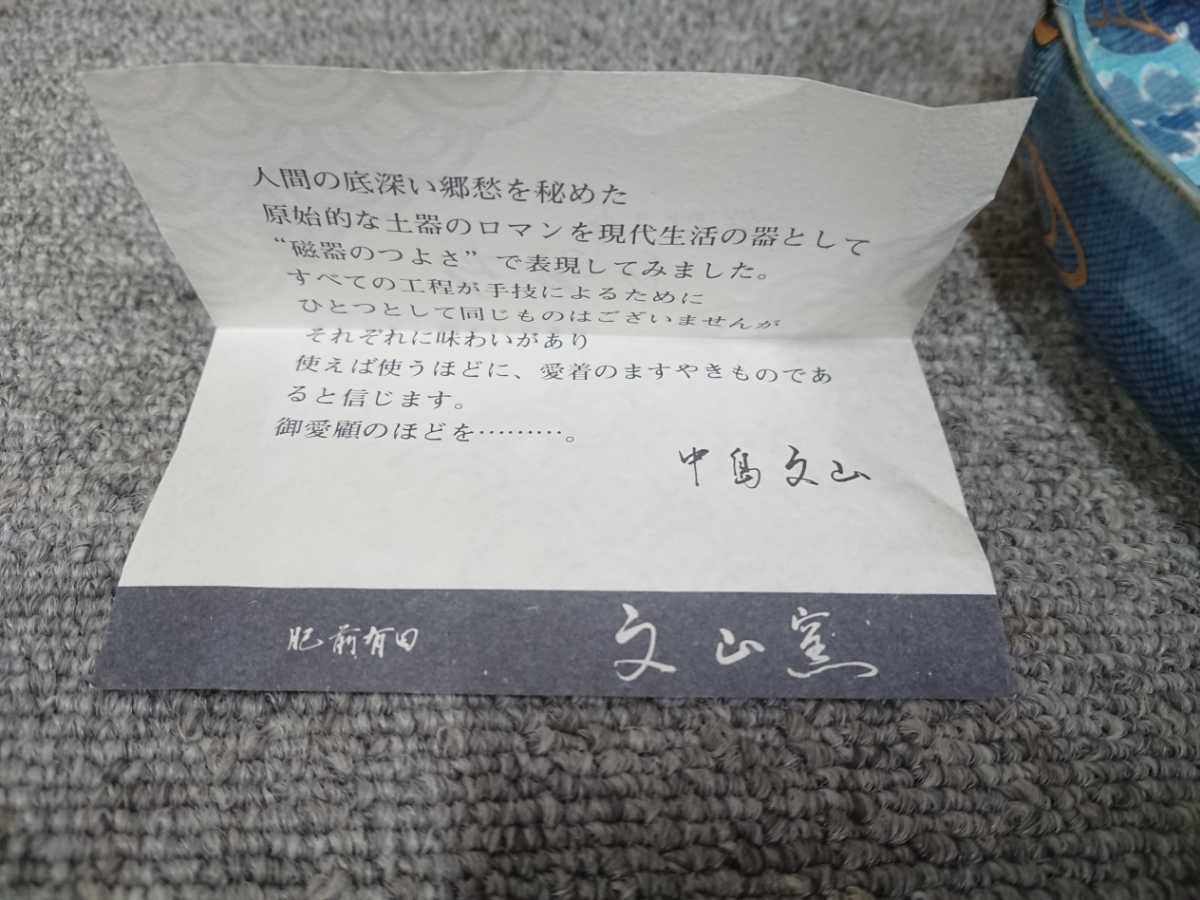 人間の底深い郷愁を秘めた
原始的な土器のロマンを現代生活の器として
“磁器のつよさ”で表現してみました。
すべての工程が手技によるために
ひとつとして同じものはございませんが
それぞれに味わいがあり
使えば使うほどに、愛着のますやきものであ
ると信じます。
御愛顧のほどを………。
中島文山
肥前有田
文山窯